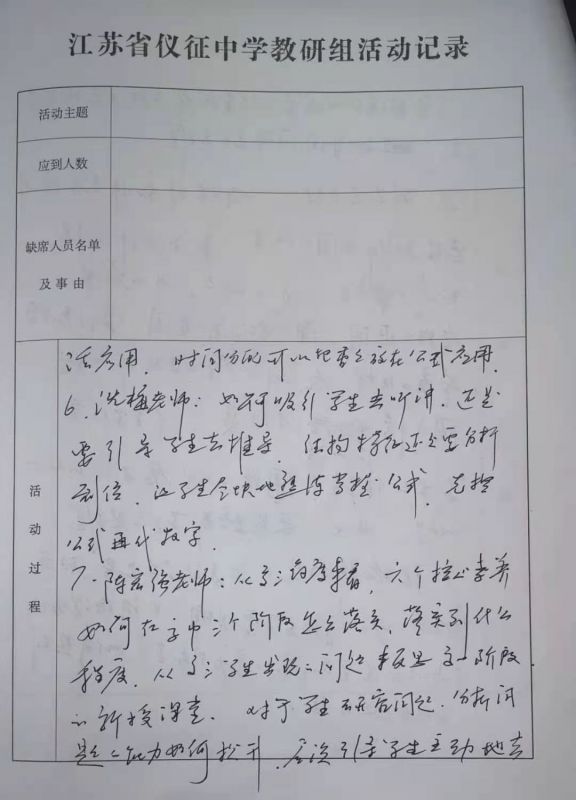 江苏省仪征中学教研组活动记录
活动主题
应到人数
缺席人员名单
及事由
活动过程
活应用，时间分配可以把重心放在公式应用。
6、洪梅老师：如何吸引学生去听讲，还是
要引导学生去推导，结构特征还是要分析
到位，让学生尽快地熟练掌握公式，先指
公式再代数字。
7、陈宏强老师：从高三的角度来看，六个核心素养
如何在高中三个阶段怎么落实，落实到什么
程度，从高三学生出现的问题来反思高一阶段
的新授课堂。对于学生研究问题、分析问
题的能力如何提升，应该引导学生主动地去